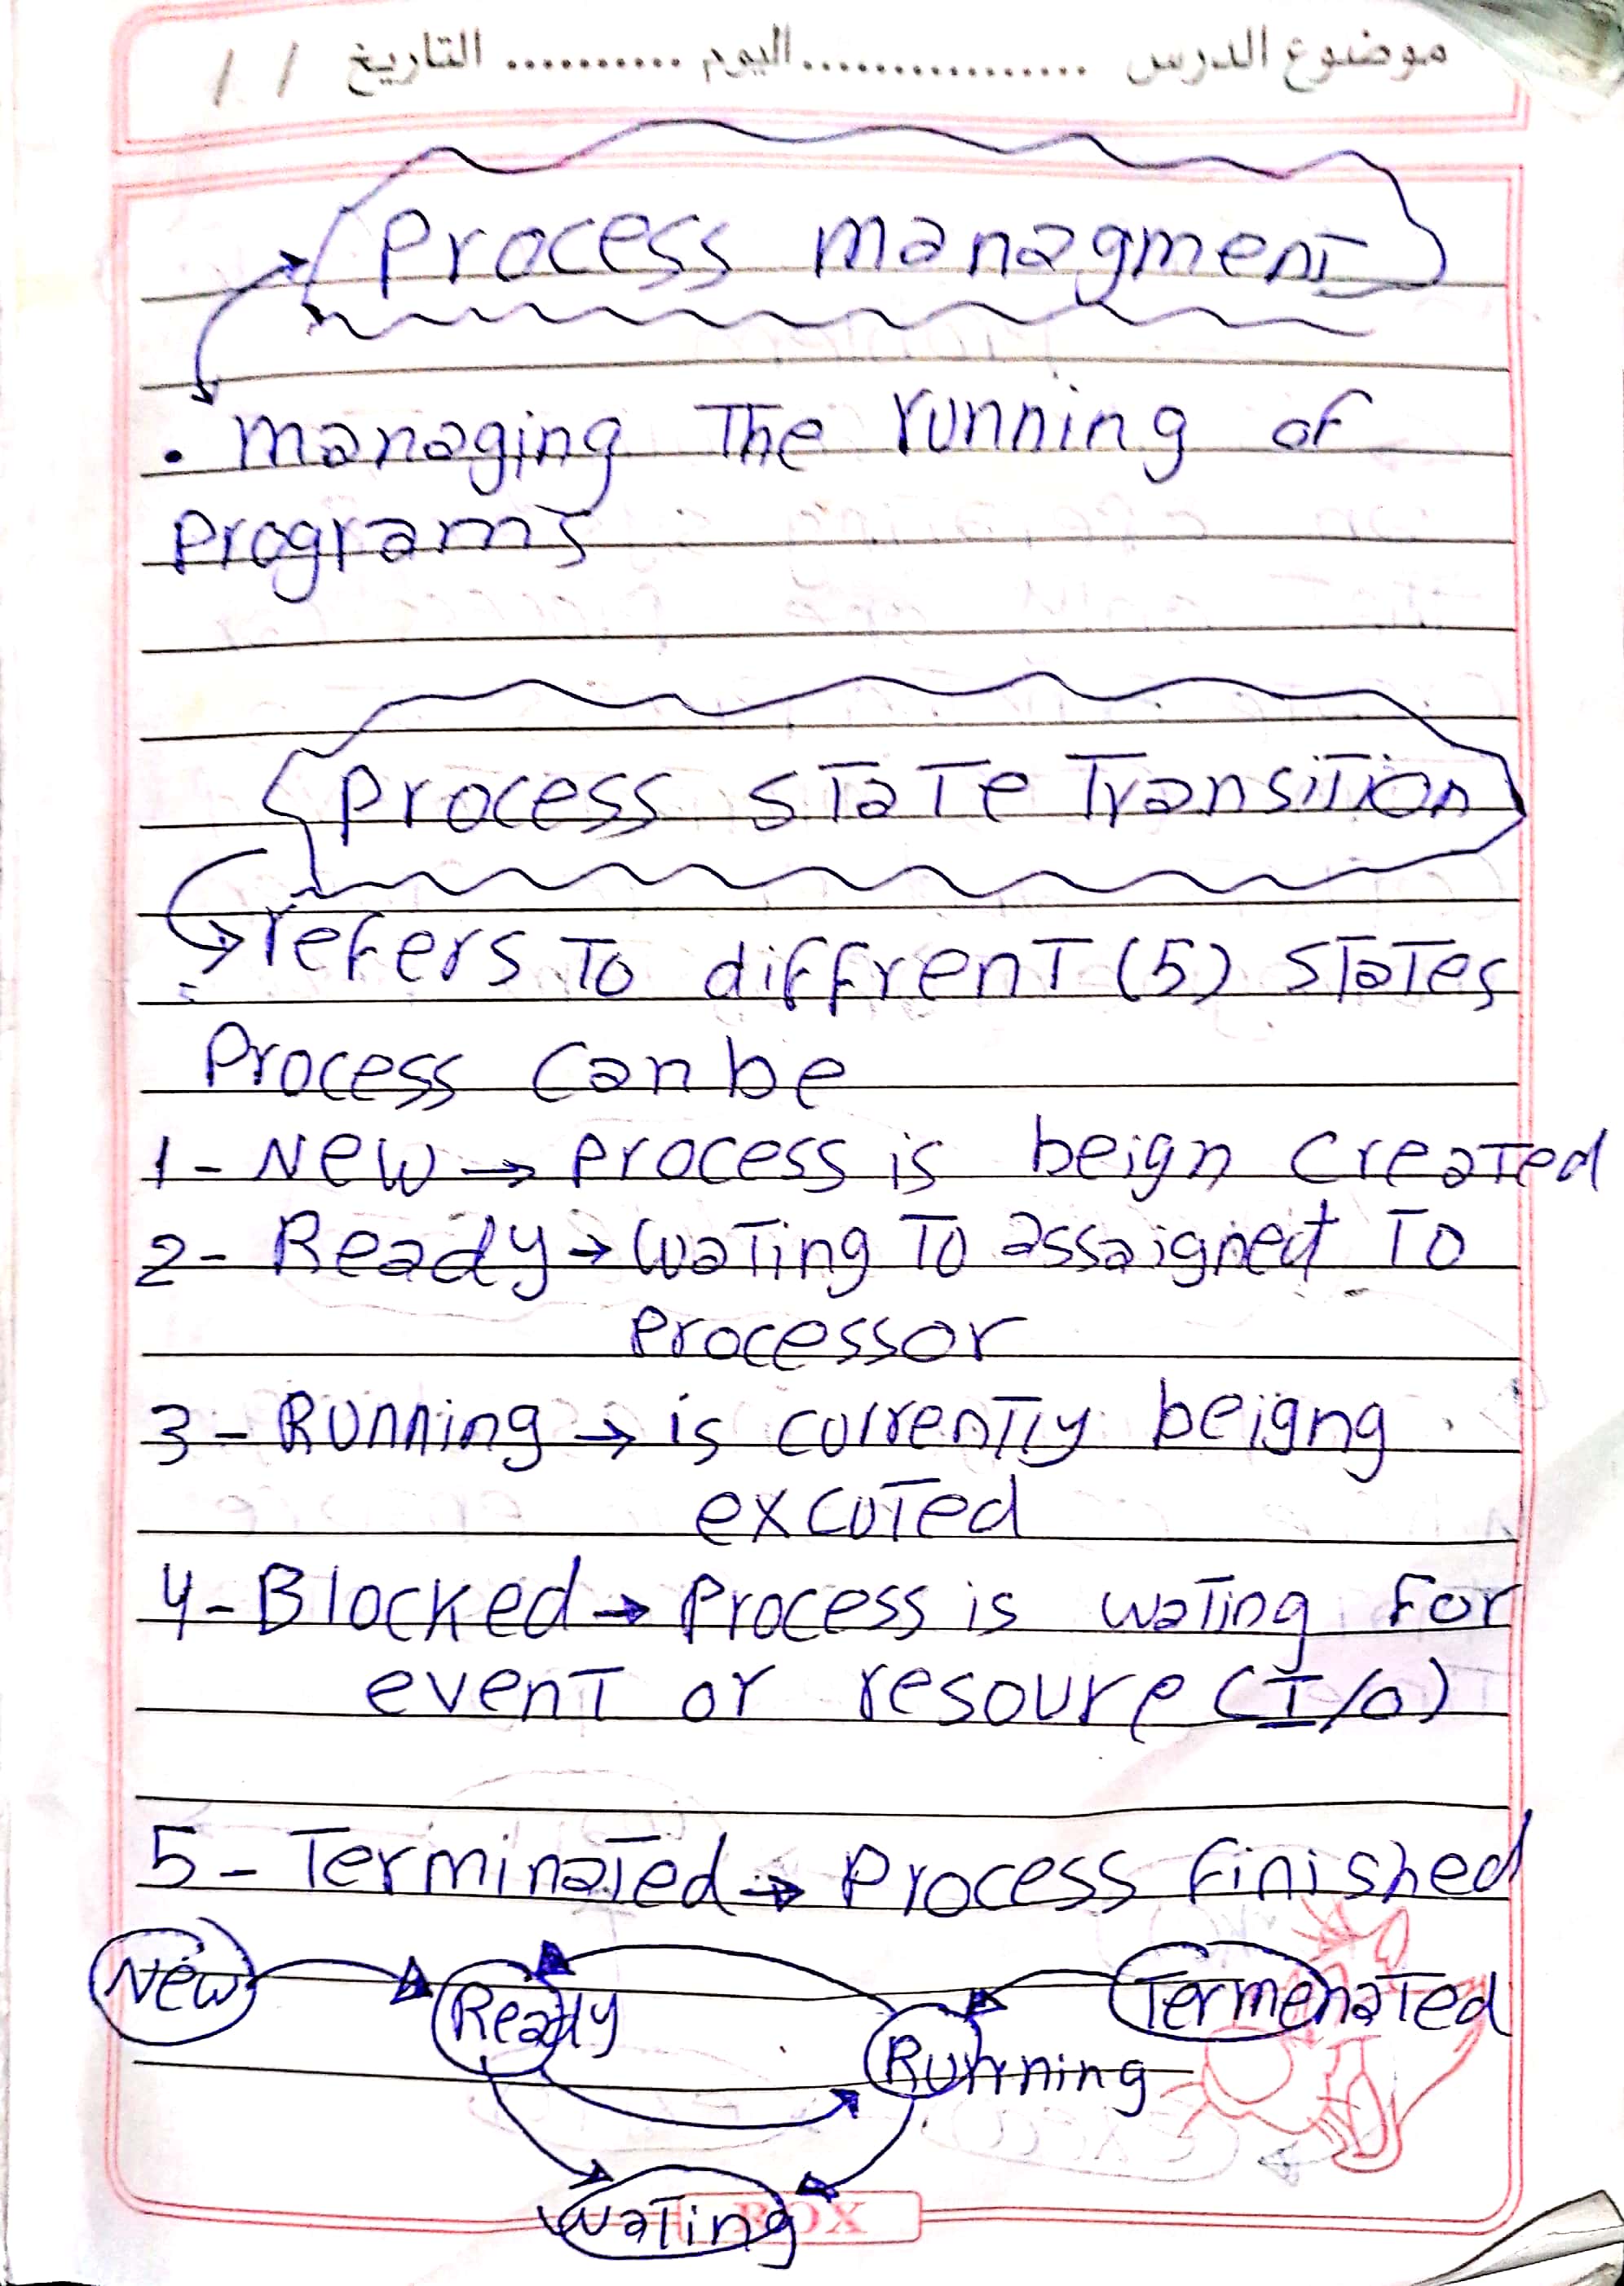 موضوع الدرس ................ اليوم .......... التاريخ / /
Process managment
• managing The running of
programs
Process state Transition
refers To diffrent (5) states
Process can be
1- New → Process is beign created
2- Ready → wating To assaigned To
processor
3- Running → is currently beigng
excuted
4- Blocked → Process is wating for
event or resoure (I/O)
5- Terminated → Process finished
New Ready Running Termenated
wating
BOX